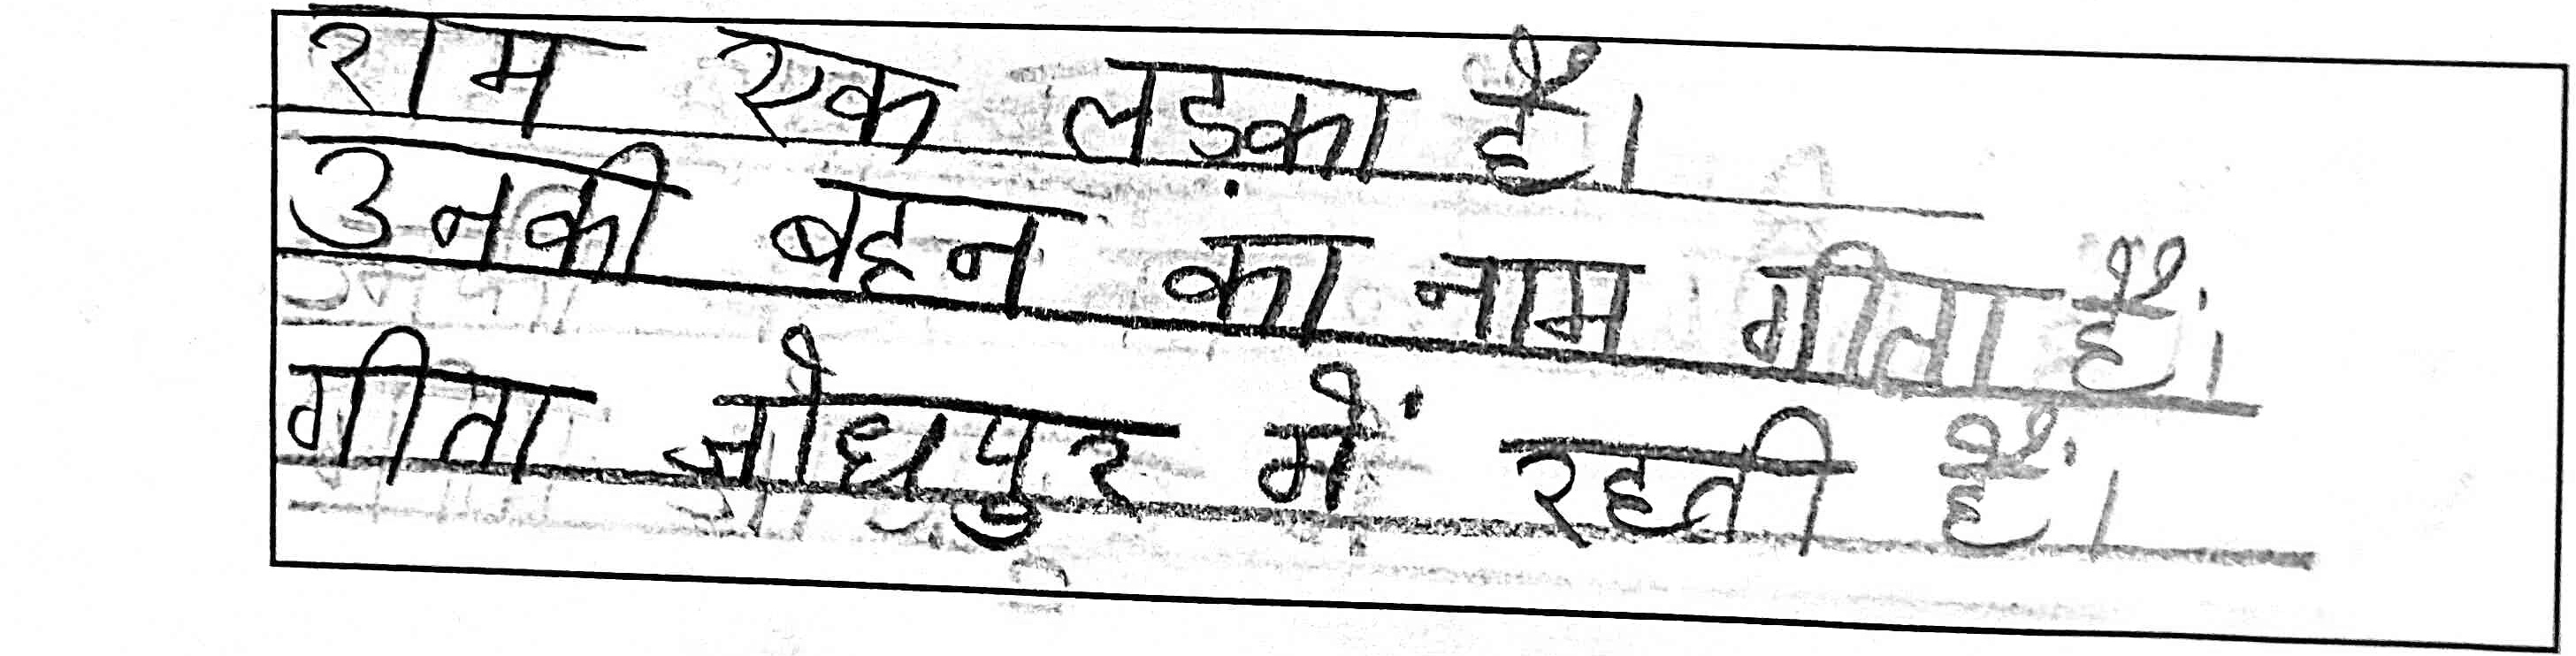 राम एक लड़का है।
उनकी बहन का नाम गीता हैं।
गीता जोधपुर में रहती हैं।